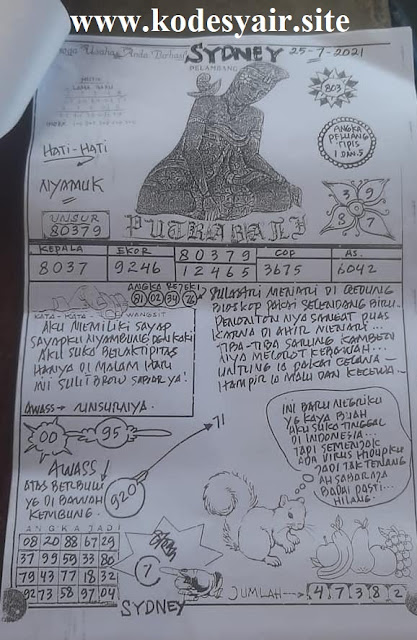 www.kodesyair.site
Semoga Usaha Anda Berhasil
SYDNEY
25-7-2021
PELAMBANG
803
HATI-HATI
NYAMUK
ANGKA
PELUANG
TIPIS
1 DAN 5
3 9
8 7
UNSUR
80379
PUTRA BALI
KEPALA EKOR 80379 COP AS
8037 9246 12465 3675 6042
ANGKA REJEKI
81 02 34 76
KATA - KATA WANGSIT
AKU MEMILIKI SAYAP
SAYAPKU NYAMBUNG DEN KAKI
AKU SUKA BERAKTIPITAS
HANYA DI MALAM HARI
INI SULIT BROW SABAR YA!
AWASS → UNSURNYA.
SULASTRI MENARI DI GEDUNG
BIOSKOP PAKAI SELENDANG BIRU..
PENONTON NYA SANGAT PUAS
KARNA DI AHIR MENARI...
TIBA-TIBA SARUNG KAMBEN
NYA MELOROT KEBAWAH...
UNTUNG IA PAKAI CELANA -
HAMPIR IA MALU DAN KECEWA.
00 95
71
AWASS
ATAS BERBULU
YG DI BAWAH
KEMBUNG.
920
INI BARU NEGRIKU
YG KAYA BUAH
AKU SUKA TINGGAL
DI INDONESIA...
TADI SEMENJAK
ADA VIRUS HIDUPKU
JADI TAK TENANG
AH SABAR AZA
BADAI PASTI...
HILANG.
ANGKA JADI
08 20 88 67 29
37 99 59 33 80
79 43 77 18 32
92 73 58 97 04
7
JUMLAH --→ 4 7 3 8 2
SYDNEY